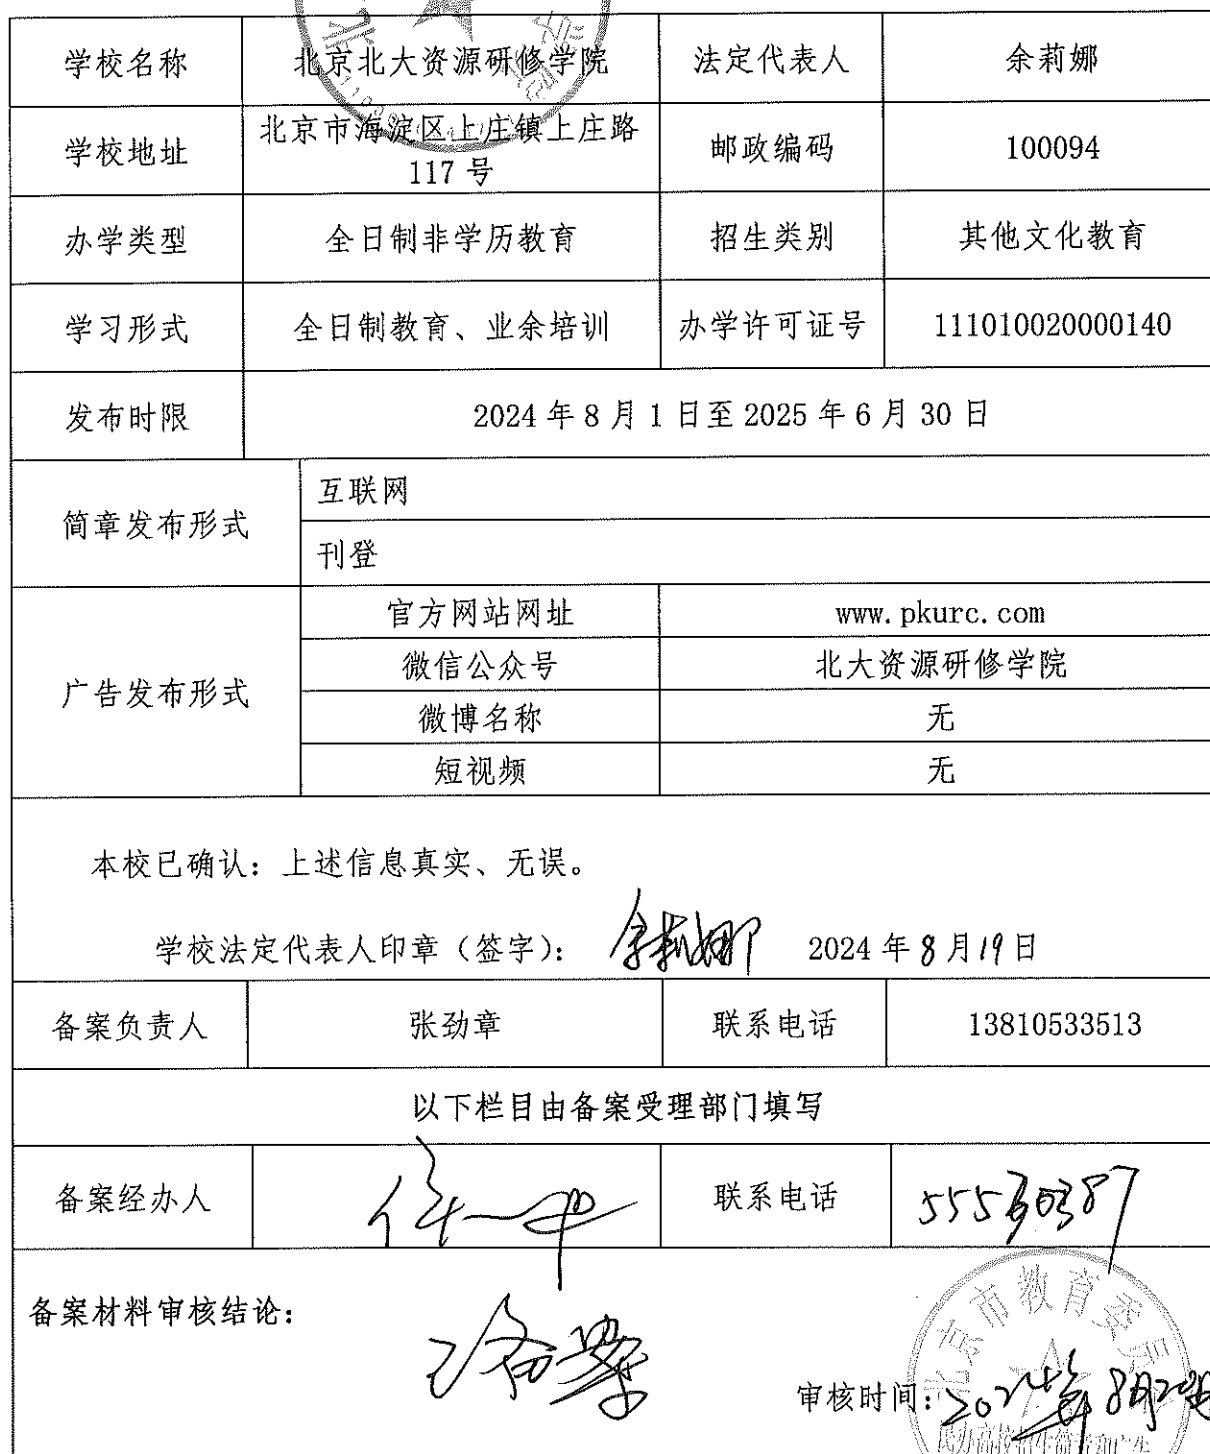 学校名称 北京北大资源研修学院 法定代表人 余莉娜
学校地址 北京市海淀区上庄镇上庄路
117号 邮政编码 100094
办学类型 全日制非学历教育 招生类别 其他文化教育
学习形式 全日制教育、业余培训 办学许可证号 111010020000140
发布时限 2024年8月1日至2025年6月30日
简章发布形式 互联网
刊登
广告发布形式 官方网站网址 www.pkurc.com
微信公众号 北大资源研修学院
微博名称 无
短视频 无
本校已确认：上述信息真实、无误。
学校法定代表人印章（签字）： 余莉娜 2024年8月19日
备案负责人 张劲章 联系电话 13810533513
以下栏目由备案受理部门填写
备案经办人 联系电话
备案材料审核结论： 已备案
北京市教育委员
审核时间：2024年8月20日
民办高校招生简章和广告